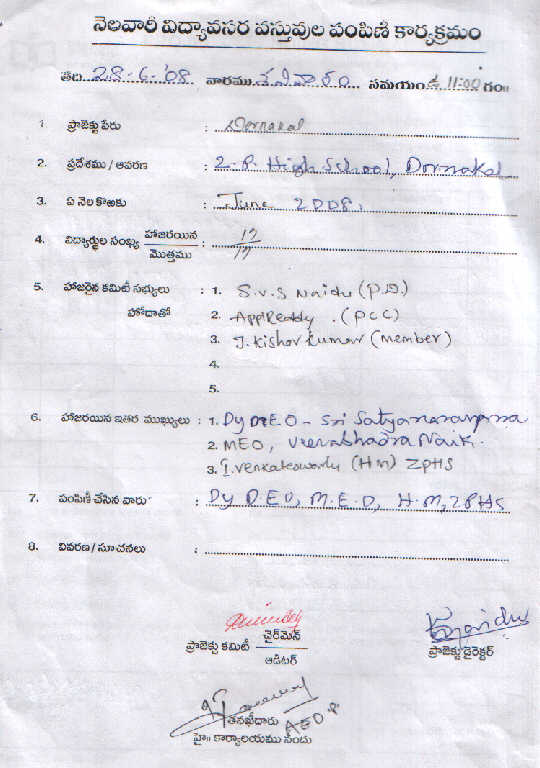 నెలవారీ విద్యావసర వస్తువుల పంపిణీ కార్యక్రమం
తేది 28-6-'08 వారము శనివారం సమయం ఉ 11:00 గం॥
1. ప్రాజెక్టు పేరు : Dornakal
2. ప్రదేశము / ఆవరణ : Z.P. High School, Dornakal
3. ఏ నెల కొఱకు : June 2008.
4. విద్యార్థుల సంఖ్య హాజరయిన / మొత్తము : 17/17
5. హాజరైన కమిటీ సభ్యులు : 1. S.V.S Naidu (P.D.)
హోదాతో 2. AppiReddy . (PCC)
3. J. Kishor Kumar (Member)
4.
5.
6. హాజరయిన ఇతర ముఖ్యులు : 1. Dy DEO - Sri Satyanarayana
2. MEO, Veerabhadra Naik.
3. I. Venkateswarly (HM) ZPHS
7. పంపిణీ చేసిన వారు : Dy D.EO, M.E.O, H.M, ZPHS
8. వివరణ / సూచనలు :
ప్రాజెక్టు కమిటీ ఛైర్‌మెన్ / ఆడిటర్
ప్రాజెక్టు డైరెక్టర్
తనిఖీదారు AEO
హై॥ కార్యాలయము నుంచి